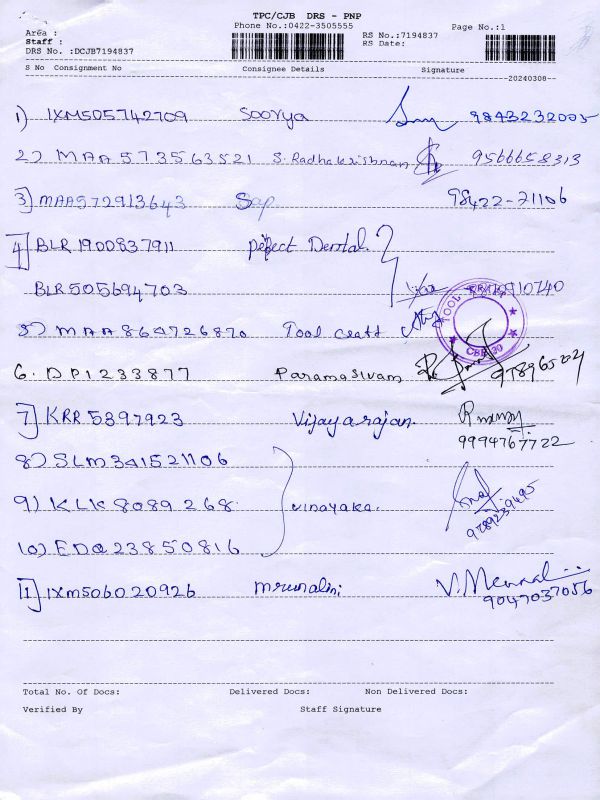 TPC/CJB DRS - PNP
Phone No.:0422-3505555
Page No.:1
Area :
Staff :
RS No.:7194837
RS Date:
DRS No. :DCJB7194837
S No Consignment No Consignee Details Signature
20240308--
1) IXM505742709 Soorya 9843232005
2) MAA573563521 S. Radhakrishnan 9566658313
3] MAA572913643 Sap 98422-21106
4] BLR1900837911 perfect Dental
BLR505694703
5) MAA864726870 Tool craft
TOOL KRAFT
CBE-30
6. DP1233877 Paramasivam
7] KRR5397923 Vijayarajan.
9994767722
8) SLM341521106
9) KLK8089268 vinayaka.
9789239495
10) EDQ23850816
11] IXM506020926 mrunalini
9047037056
Total No. Of Docs: Delivered Docs: Non Delivered Docs:
Verified By Staff Signature